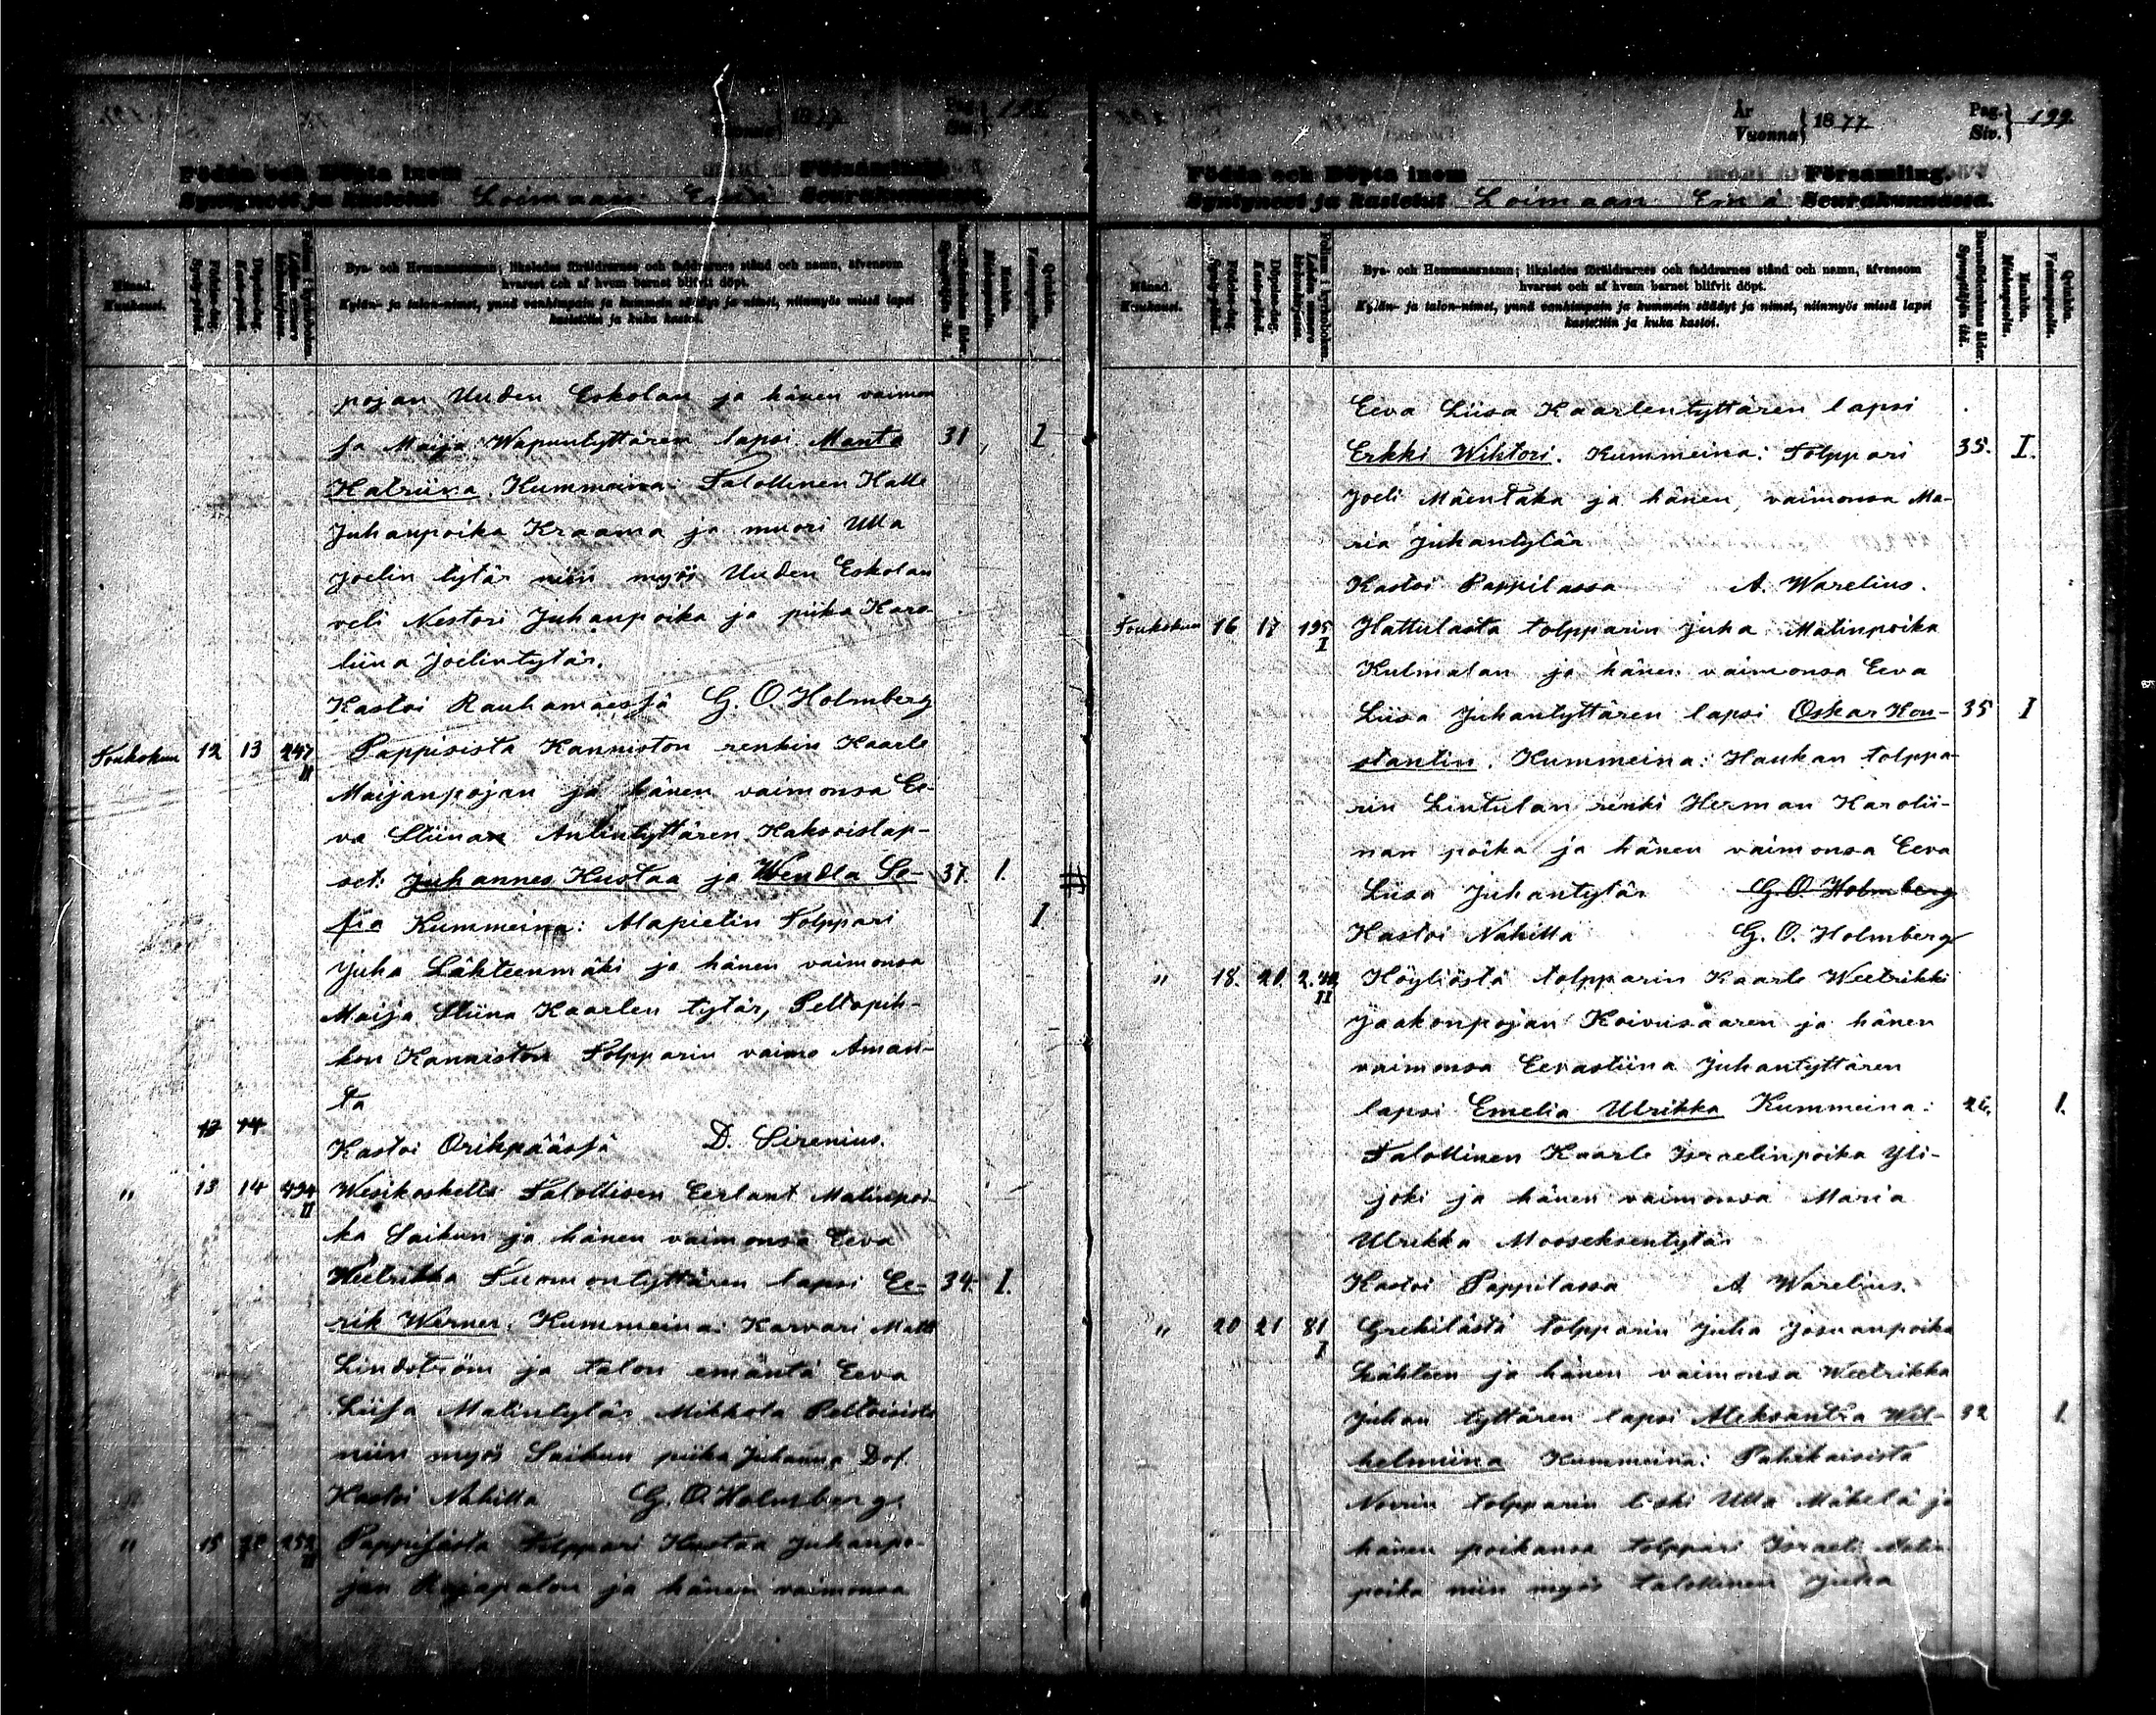 1877
Födda och Döpta inom Församling.
Syntyneet ja kastetut Loimaan Emä Seurakunnassa.
Månad.
Kuukausi.
Bys- och Hemmansnamn; likaledes föräldrarnes och faddrarnes stånd och namn, äfvensom
hvarest och af hvem barnet blifvit döpt.
Kylän- ja talon-nimet, ynnä vanhimpain ja kummein säädyt ja nimet, niinmyös missä lapsi
kastettiin ja kuka kastoi.
pojan Uuden Eskolan ja hänen vaimon
sa Maija Wapuntyttären lapsi Manta 31 1
Katriina. Kummeina: Talollinen Kalle
Juhanpoika Kraama ja muori Ulla
Joelin tytär niin myös Uuden Eskolan
veli Nestori Juhanpoika ja piika Karo
liina Joelintytär.
Kastoi Rauhamäessä G. O. Holmberg
Toukokuu 12 13 247 II Pappisista Kanniston renkin Kaarle
Maijanpojan ja hänen vaimonsa Ee-
va Stiinan Antintyttären Kaksoislap-
set: Juhannes Kustaa ja Wendla So- 37. 1.
fia Kummeina: Alapietin Tolppari I.
Juha Lähteenmäki ja hänen vaimonsa
Maija Stiina Kaarlen tytär, Peltopih-
kon Kanniston Tolpparin vaimo Aman-
ta
12 14
Kastoi Orihpäässä D. Sirenius.
" 13 14 494 II Wesikoskelta Talollisen Eerlant Matinpoi-
ka Saikun ja hänen vaimonsa Eeva
Weetrikka Tuomontyttären lapsi Ee- 34. I.
rik Werner. Kummeina: Karvari Matti
Lindström ja talon emäntä Eeva
Liisa Matintytär Mikkola Peltoisista
niin myös Saikun piika Juhanna Dof.
Kastoi Nahilla G. O. Holmberg.
" 15 252 II Pappisista Tolppari Kustaa Juhanpo-
jan Rajapalon ja hänen vaimonsa
År
Vuonna 1877 Pag.
Siv. 199.
Födda och Döpta inom Församling.
Syntyneet ja kastetut Loimaan Emä Seurakunnassa.
Månad.
Kuukausi.
Bys- och Hemmansnamn; likaledes föräldrarnes och faddrarnes stånd och namn, äfvensom
hvarest och af hvem barnet blifvit döpt.
Kylän- ja talon-nimet, ynnä vanhimpain ja kummein säädyt ja nimet, niinmyös missä lapsi
kastettiin ja kuka kastoi.
Eeva Liisa Kaarlentyttären lapsi
Erkki Wihtori. Kummeina: Tolppari 35. I.
Joeli Mäentaka ja hänen vaimonsa Ma-
ria Juhantytär
Kastoi Pappilassa A. Warelius.
Toukokuu 16 17 195 I Hattulasta tolpparin Juha Matinpoika
Kulmalan ja hänen vaimonsa Eeva
Liisa Juhantyttären lapsi Oskar Kon- 35 I
stantin. Kummeina: Haukan tolppa-
rin Lintulan renki Herman Karolii-
nan poika ja hänen vaimonsa Eeva
Liisa Juhantytär G. O. Holmberg
Kastoi Nahilla G. O. Holmberg
" 18. 20. II Höyliöstä tolpparin Kaarle Weetrikki
Jaakonpojan Koivusaaren ja hänen
vaimonsa Eevastiina Juhantyttären
lapsi Emelia Ulrikka Kummeina: 26. 1.
Talollinen Kaarle Israelinpoika Yli-
joki ja hänen vaimonsa Maria
Ulrikka Mooseksentytär
Kastoi Pappilassa A. Warelius.
" 20 21 81 I Grekilästä tolpparin Juha Josuanpoika
Lähteen ja hänen vaimonsa Weetrikka
Juhan tyttären lapsi Aleksantra Wil- 32 1.
helmiina Kummeina: Pahikaisista
Norrin tolpparin leski Ulla Mäkelä ja
hänen poikansa tolppari Israeli Matin
poika niin myös talollinen Juha